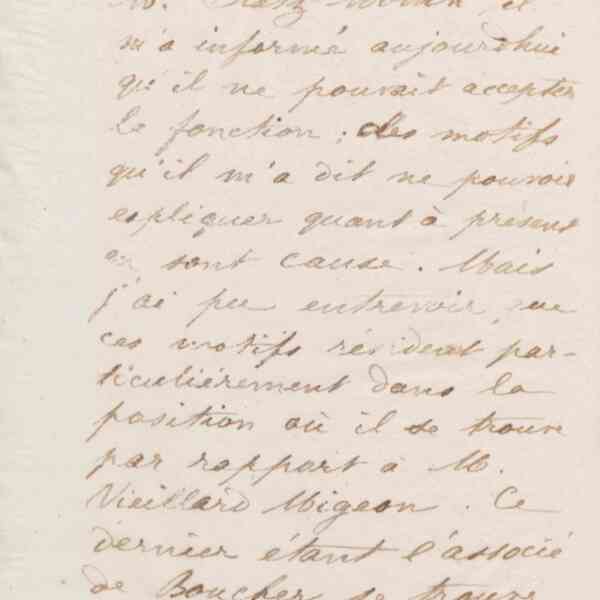 m'a informé aujourdhui
qu'il ne pouvait accepter
la fonction ; des motifs
qu'il m'a dit ne pouvoir
expliquer quant à présent
en sont cause. Mais
j'ai pu entrevoir que
ces motifs résident par-
ticulièrement dans la
position où il se trouve
par rapport à M.
Vieillard Migeon. Ce
dernier étant l'associé
de Boucher se trouve